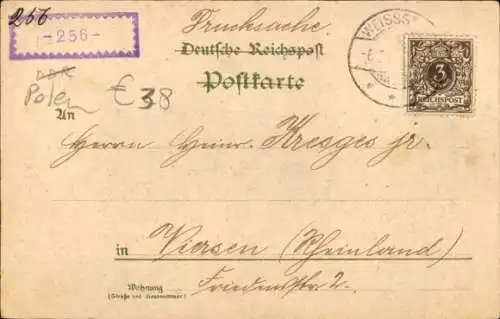 256
- 256 -
Drucksache.
Deutsche Reichspost
Postkarte
WEISSS
3
REICHSPOST
DDR
Polen
€ 38
An
Herrn Heinr. Kresges jr.
in Viersen (Rheinland)
Wohnung
(Straße und Hausnummer)
2.